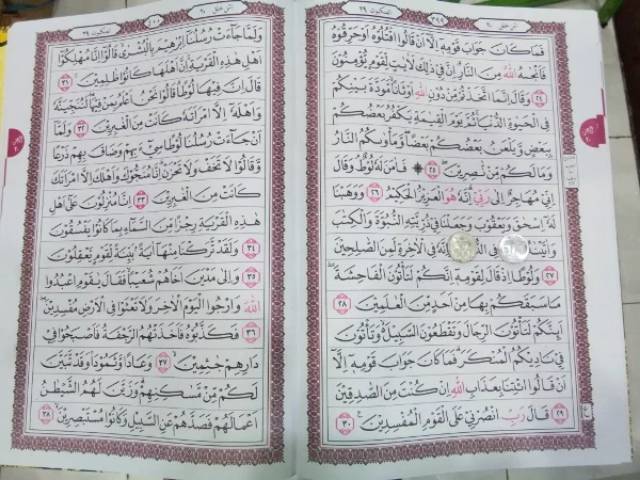 فَمَا كَانَ جَوَابَ قَوْمِهِ إِلَّا أَنْ قَالُوا اقْتُلُوهُ أَوْ حَرِّقُوهُ
فَأَنْجٰىهُ اللّٰهُ مِنَ النَّارِ إِنَّ فِي ذٰلِكَ لَاٰيٰتٍ لِقَوْمٍ يُؤْمِنُونَ
٢٤ وَقَالَ إِنَّمَا اتَّخَذْتُمْ مِنْ دُونِ اللّٰهِ أَوْثَانًا مَوَدَّةَ بَيْنِكُمْ
فِي الْحَيٰوةِ الدُّنْيَا ثُمَّ يَوْمَ الْقِيٰمَةِ يَكْفُرُ بَعْضُكُمْ
بِبَعْضٍ وَيَلْعَنُ بَعْضُكُمْ بَعْضًا وَمَأْوٰىكُمُ النَّارُ
وَمَا لَكُمْ مِنْ نٰصِرِينَ ٢٥ فَاٰمَنَ لَهُ لُوطٌ وَقَالَ
إِنِّي مُهَاجِرٌ إِلٰى رَبِّي إِنَّهُ هُوَ الْعَزِيزُ الْحَكِيمُ ٢٦ وَوَهَبْنَا
لَهُ إِسْحٰقَ وَيَعْقُوبَ وَجَعَلْنَا فِي ذُرِّيَّتِهِ النُّبُوَّةَ وَالْكِتٰبَ
وَاٰتَيْنٰهُ فِي وَإِنَّهُ فِي الْاٰخِرَةِ لَمِنَ الصّٰلِحِينَ
٢٧ وَلُوطًا إِذْ قَالَ لِقَوْمِهِ إِنَّكُمْ لَتَأْتُونَ الْفَاحِشَةَ
مَا سَبَقَكُمْ بِهَا مِنْ أَحَدٍ مِنَ الْعٰلَمِينَ ٢٨
أَئِنَّكُمْ لَتَأْتُونَ الرِّجَالَ وَتَقْطَعُونَ السَّبِيلَ وَتَأْتُونَ
فِي نَادِيكُمُ الْمُنْكَرَ فَمَا كَانَ جَوَابَ قَوْمِهِ إِلَّا
أَنْ قَالُوا ائْتِنَا بِعَذَابِ اللّٰهِ إِنْ كُنْتَ مِنَ الصّٰدِقِينَ
٢٩ قَالَ رَبِّ انْصُرْنِي عَلَى الْقَوْمِ الْمُفْسِدِينَ ٣٠
وَلَمَّا جَاءَتْ رُسُلُنَا إِبْرٰهِيمَ بِالْبُشْرٰى قَالُوا إِنَّا مُهْلِكُوا
أَهْلِ هٰذِهِ الْقَرْيَةِ إِنَّ أَهْلَهَا كَانُوا ظٰلِمِينَ ٣١
قَالَ إِنَّ فِيهَا لُوطًا قَالُوا نَحْنُ أَعْلَمُ بِمَنْ فِيهَا لَنُنَجِّيَنَّهُ
وَأَهْلَهُ إِلَّا امْرَأَتَهُ كَانَتْ مِنَ الْغٰبِرِينَ ٣٢ وَلَمَّا
أَنْ جَاءَتْ رُسُلُنَا لُوطًا سِيءَ بِهِمْ وَضَاقَ بِهِمْ ذَرْعًا
وَقَالُوا لَا تَخَفْ وَلَا تَحْزَنْ إِنَّا مُنَجُّوكَ وَأَهْلَكَ إِلَّا امْرَأَتَكَ
كَانَتْ مِنَ الْغٰبِرِينَ ٣٣ إِنَّا مُنْزِلُونَ عَلٰى أَهْلِ
هٰذِهِ الْقَرْيَةِ رِجْزًا مِنَ السَّمَاءِ بِمَا كَانُوا يَفْسُقُونَ
٣٤ وَلَقَدْ تَرَكْنَا مِنْهَا اٰيَةً بَيِّنَةً لِقَوْمٍ يَعْقِلُونَ
٣٥ وَإِلٰى مَدْيَنَ أَخَاهُمْ شُعَيْبًا فَقَالَ يٰقَوْمِ اعْبُدُوا
اللّٰهَ وَارْجُوا الْيَوْمَ الْاٰخِرَ وَلَا تَعْثَوْا فِي الْأَرْضِ مُفْسِدِينَ
٣٦ فَكَذَّبُوهُ فَأَخَذَتْهُمُ الرَّجْفَةُ فَأَصْبَحُوا فِي
دَارِهِمْ جٰثِمِينَ ٣٧ وَعَادًا وَثَمُودَ وَقَدْ تَبَيَّنَ
لَكُمْ مِنْ مَسٰكِنِهِمْ وَزَيَّنَ لَهُمُ الشَّيْطٰنُ
أَعْمَالَهُمْ فَصَدَّهُمْ عَنِ السَّبِيلِ وَكَانُوا مُسْتَبْصِرِينَ ٣٨